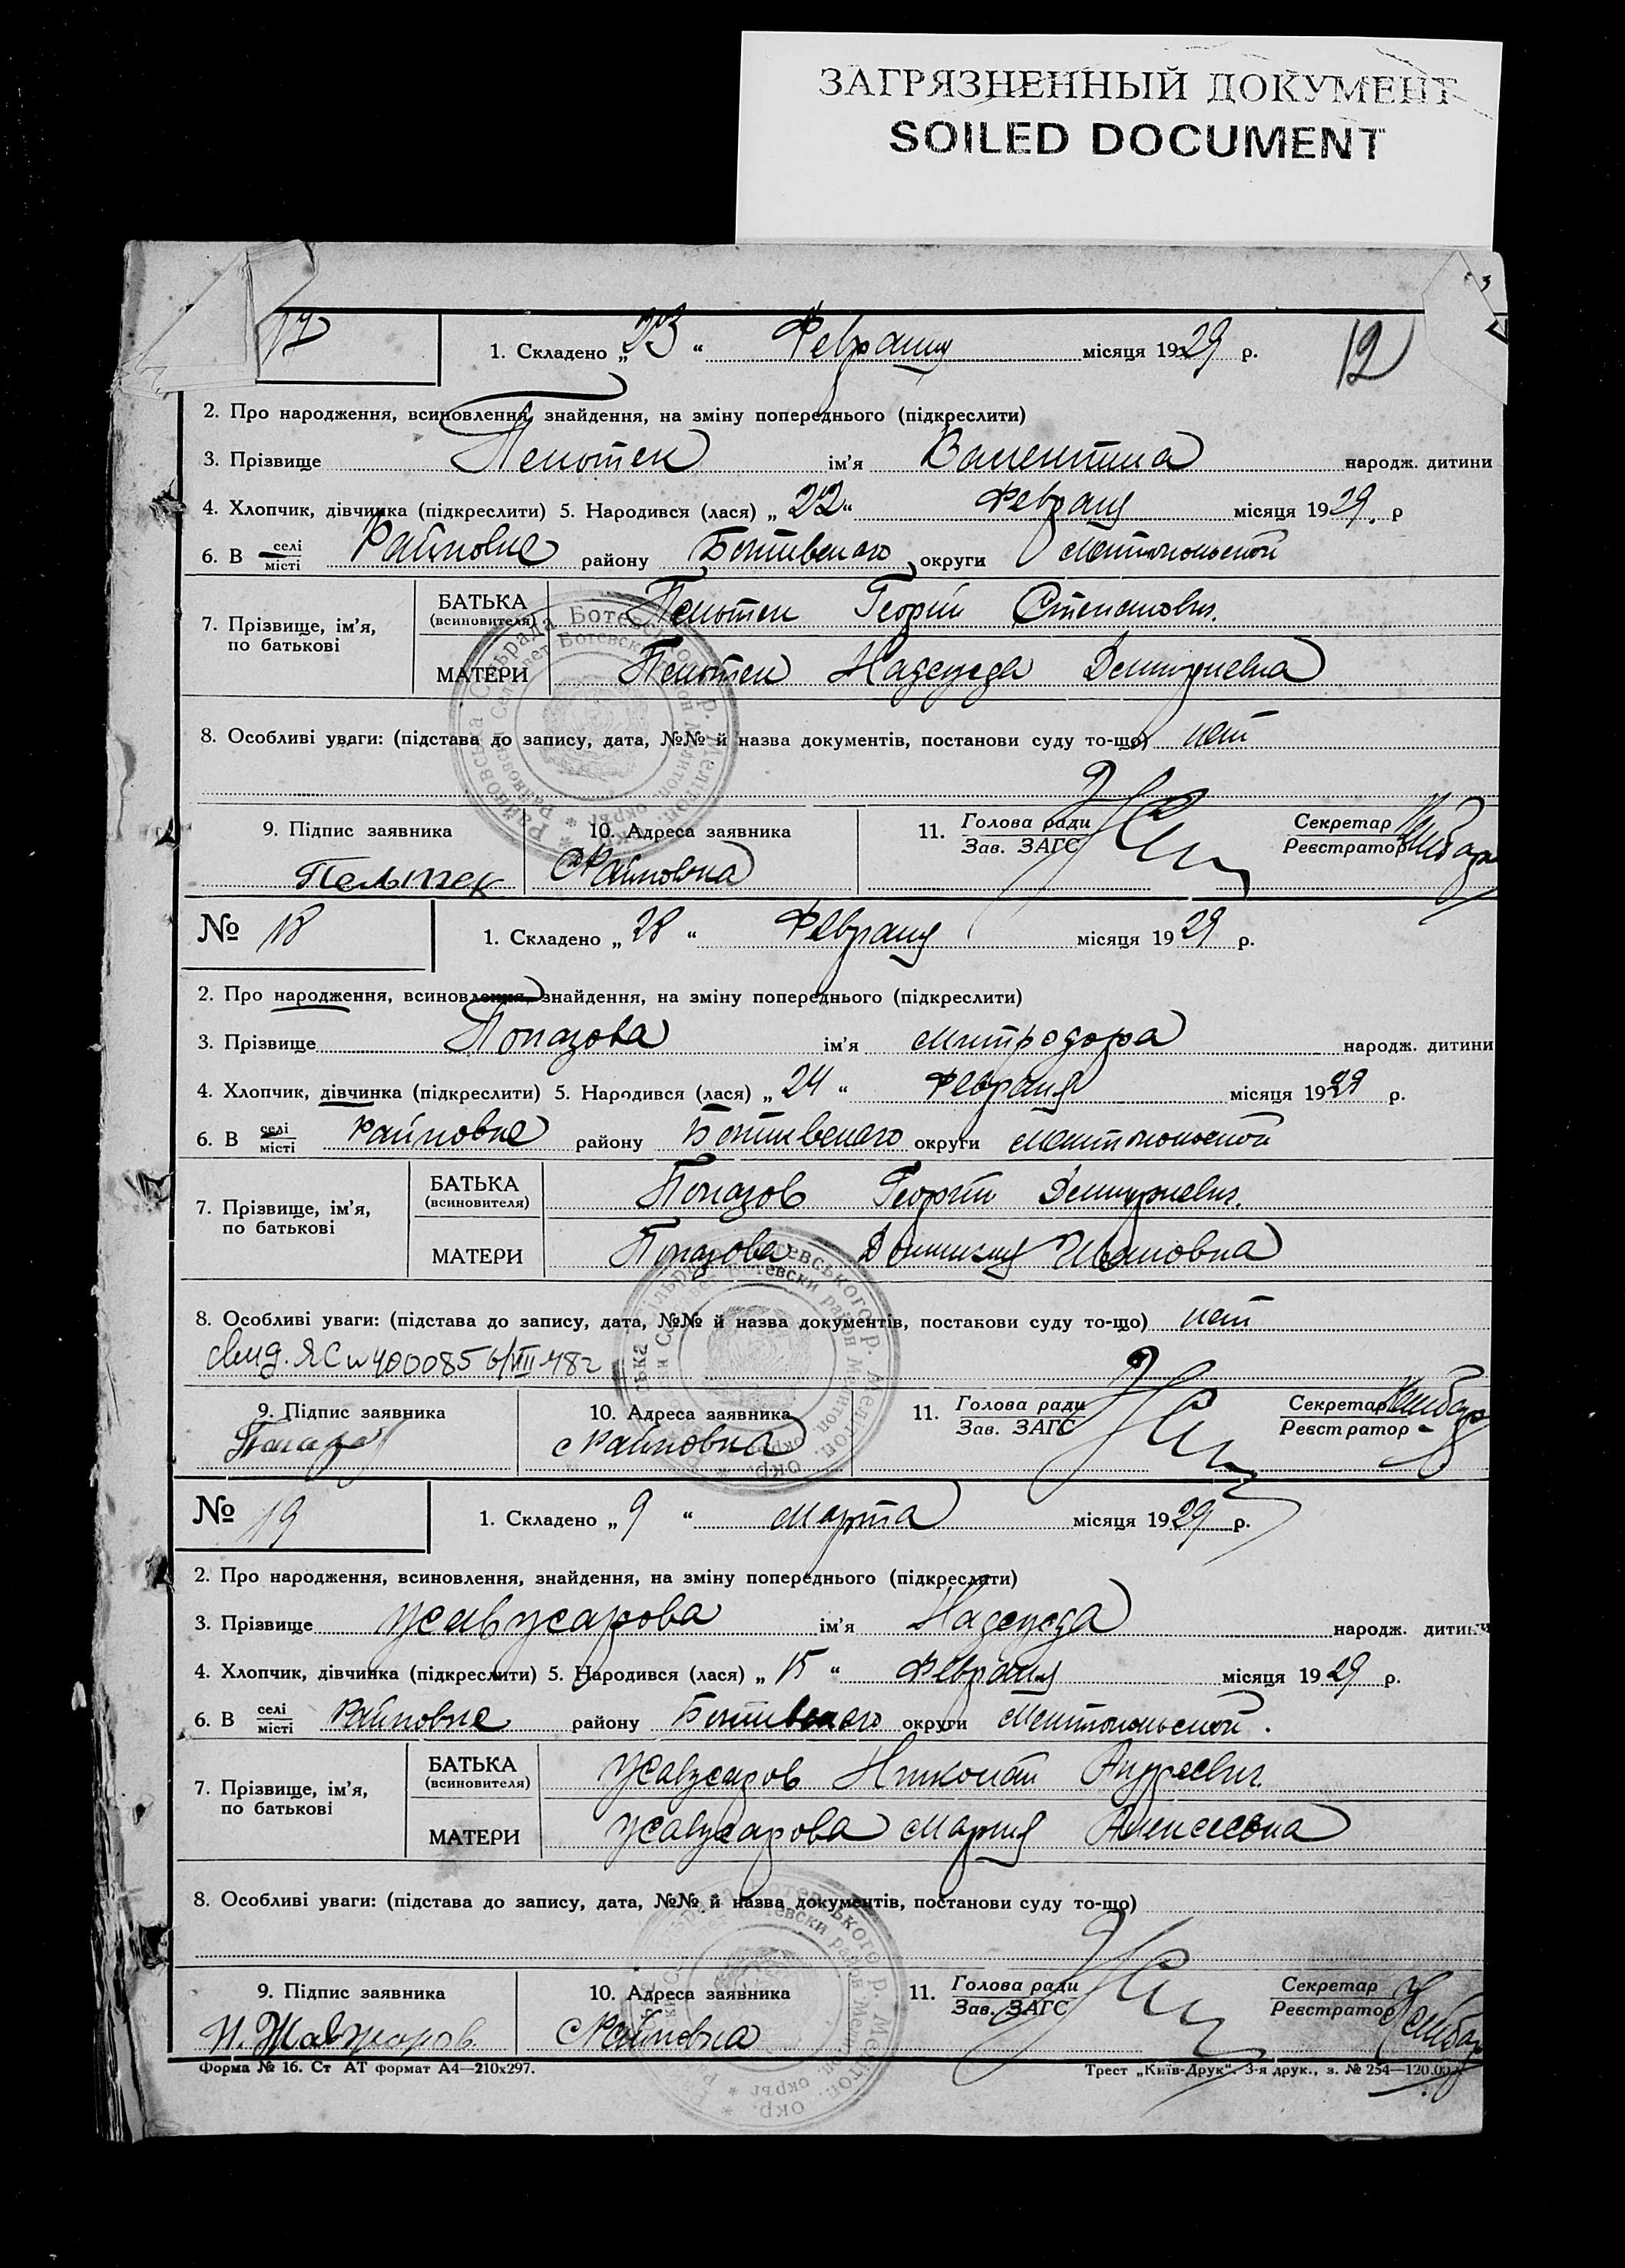 ЗАГРЯЗНЕННЫЙ ДОКУМЕНТ
SOILED DOCUMENT
17
1. Складено „23“ Февраля місяця 1929 р.
12
2. Про народження, всиновлення, знайдення, на зміну попереднього (підкреслити)
3. Прізвище Пельтек ім'я Валентина народж. дитини
4. Хлопчик, дівчинка (підкреслити) 5. Народився (лася) „22“ Февраля місяця 1929 р
6. В селі місті Райновке району Ботивского округи Мелитопольской
7. Прізвище, ім'я, по батькові
БАТЬКА (всиновителя) Пельтек Георгій Степанович.
МАТЕРИ Пельтек Надежда Дмитриевна
8. Особливі уваги: (підстава до запису, дата, №№ й назва документів, постанови суду то-що) нет
9. Підпис заявника 10. Адреса заявника 11. Голова ради Зав. ЗАГС Секретар Реєстратор
Пельтек с Райновка
№ 18 1. Складено „28“ Февраля місяця 1929 р.
2. Про народження, всиновлення, знайдення, на зміну попереднього (підкреслити)
3. Прізвище Попазова ім'я Митродора народж. дитини
4. Хлопчик, дівчинка (підкреслити) 5. Народився (лася) „24“ Февраля місяця 1929 р.
6. В селі місті Райновке району Ботивского округи Мелитопольской
7. Прізвище, ім'я, по батькові
БАТЬКА (всиновителя) Попазов Георгій Дмитриевич.
МАТЕРИ Попазова Ивановна
8. Особливі уваги: (підстава до запису, дата, №№ й назва документів, постанови суду то-що) нет
Свид. ЯС № 400085 6/VIII 48 г
9. Підпис заявника 10. Адреса заявника 11. Голова ради Зав. ЗАГС Секретар Реєстратор
с Райновка
№ 19 1. Складено „9“ Марта місяця 1929 р.
2. Про народження, всиновлення, знайдення, на зміну попереднього (підкреслити)
3. Прізвище Жавжарова ім'я Надежда народж. дитини
4. Хлопчик, дівчинка (підкреслити) 5. Народився (лася) „15“ Февраля місяця 1929 р.
6. В селі місті Райновке району Ботивского округи Мелитопольской.
7. Прізвище, ім'я, по батькові
БАТЬКА (всиновителя) Жавжаров Николай Андреевич.
МАТЕРИ Жавжарова Мария Алексеевна
8. Особливі уваги: (підстава до запису, дата, №№ й назва документів, постанови суду то-що)
9. Підпис заявника 10. Адреса заявника 11. Голова ради Зав. ЗАГС Секретар Реєстратор
Н. Жавжаров с Райновка
Форма № 16. Ст АТ формат А4—210х297. Трест „Київ-Друк“. 3-я друк., з. № 254—120.000